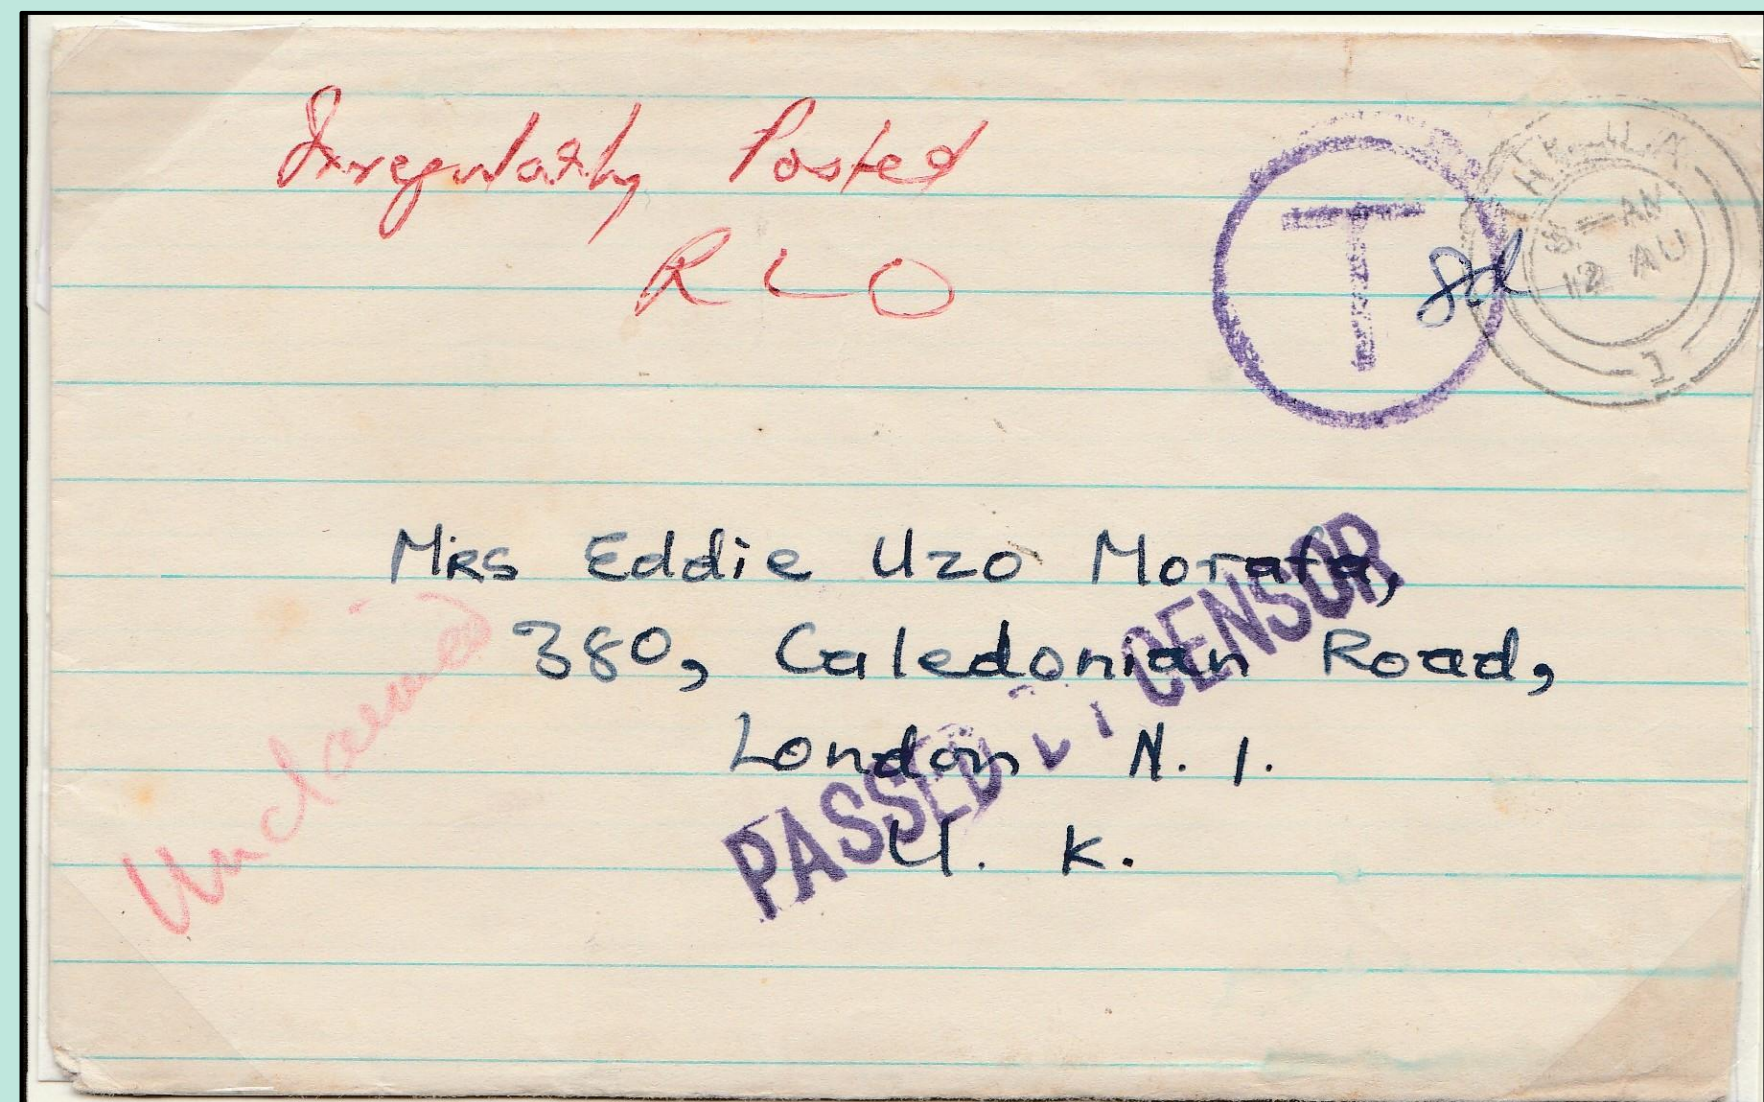 Irregularly Posted
R L O
T
8d
AM
12 AU
1
Mrs Eddie Uzo Morafa,
380, Caledonian Road,
London N. 1.
U. K.
PASSED BY CENSOR
Unclaimed